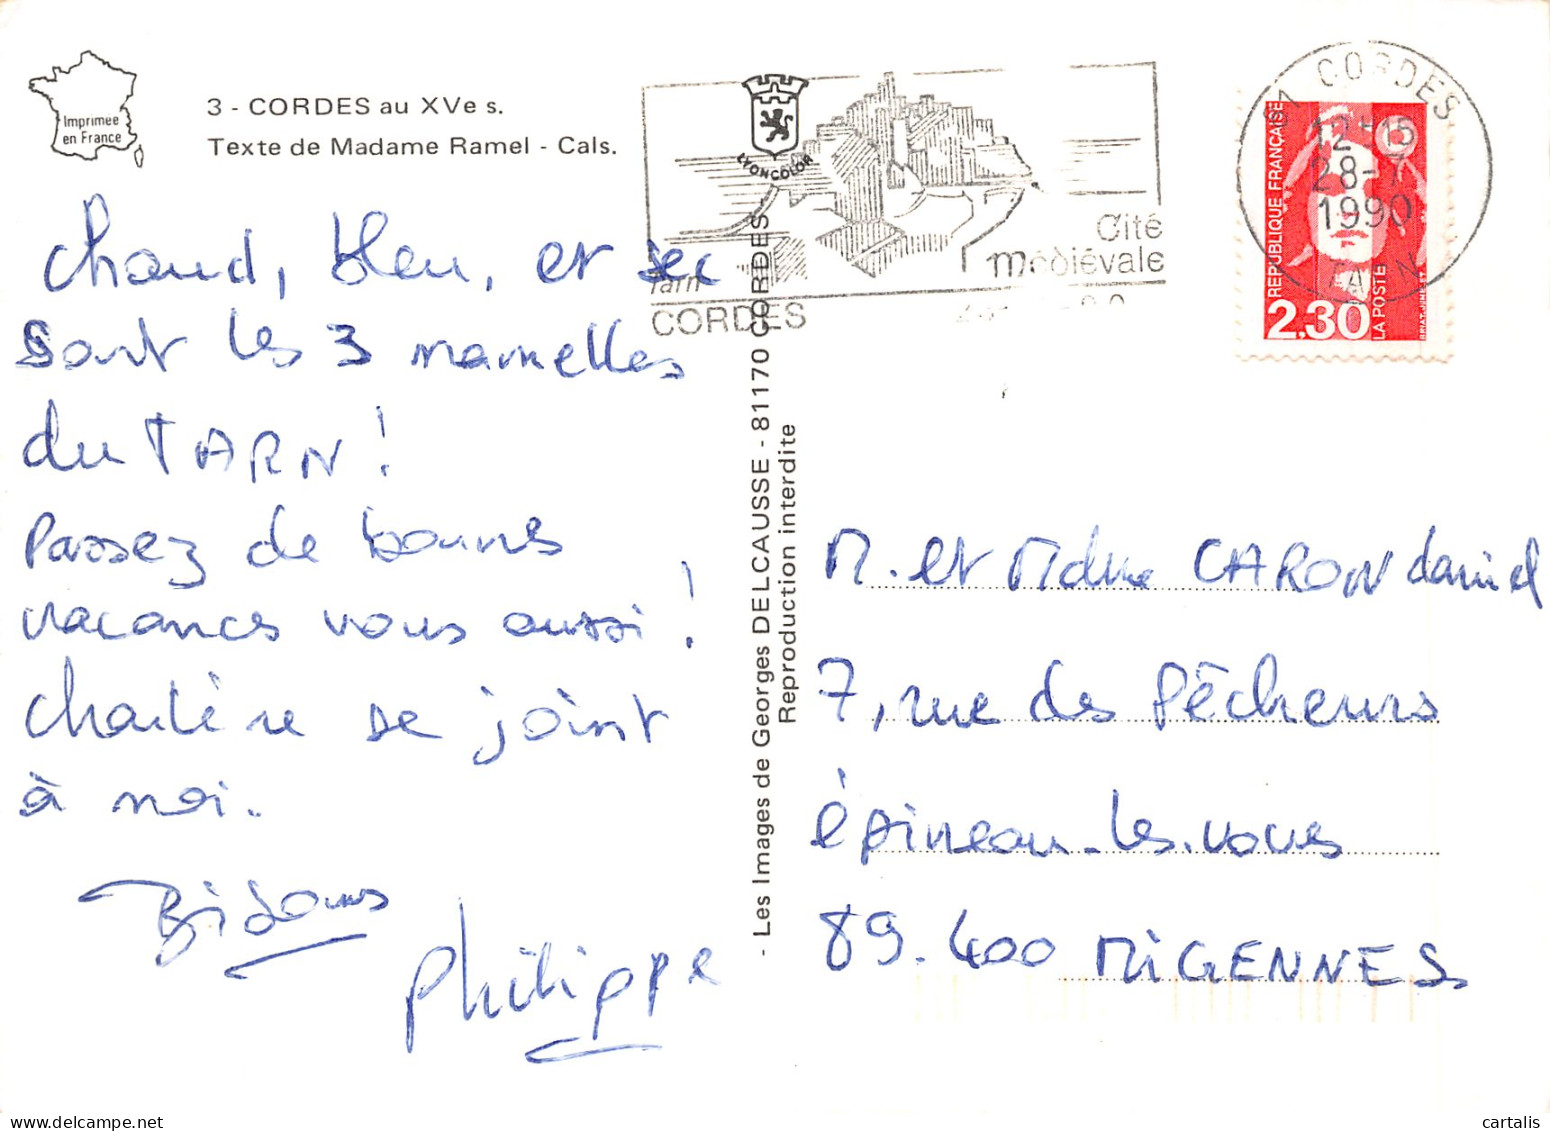 Imprimée
en France
3 - CORDES au XVe s.
Texte de Madame Ramel - Cals.
chaud, bleu, et sec
sont les 3 mamelles
du TARN !
Passez de bonnes
vacances vous aussi !
se joint
à moi.
Bisous
Philippe
LYONCOLOR
Tarn
Cité
médiévale
CORDES
- Les Images de Georges DELCAUSSE - 81170 CORDES
Reproduction interdite
81 CORDES
12H15
28-7
1990
TARN
REPUBLIQUE FRANÇAISE
2,30
LA POSTE
BRIAT.JUMELET
M. et Mdme CARON daniel
7, rue des Pêcheurs
épineau-les-voves
89.400 MIGENNES
cartalis.com